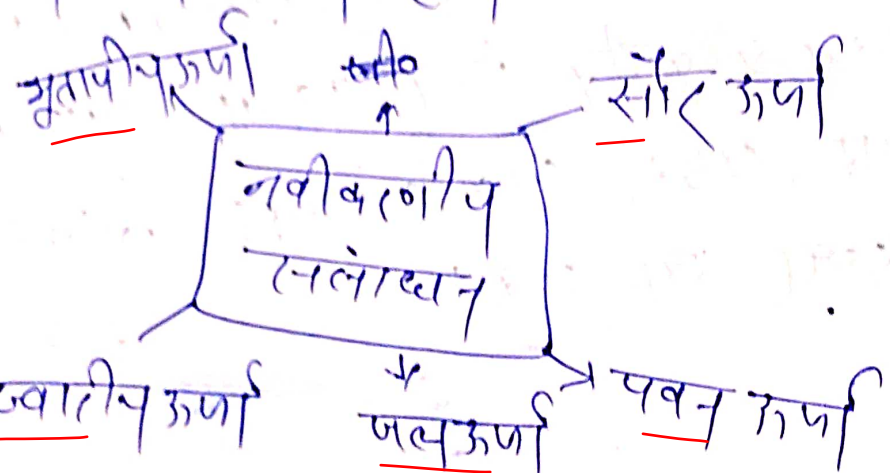 भूतापीय ऊर्जा
सौर ऊर्जा
नवीकरणीय
संसाधन
ज्वारीय ऊर्जा
जल ऊर्जा
पवन ऊर्जा